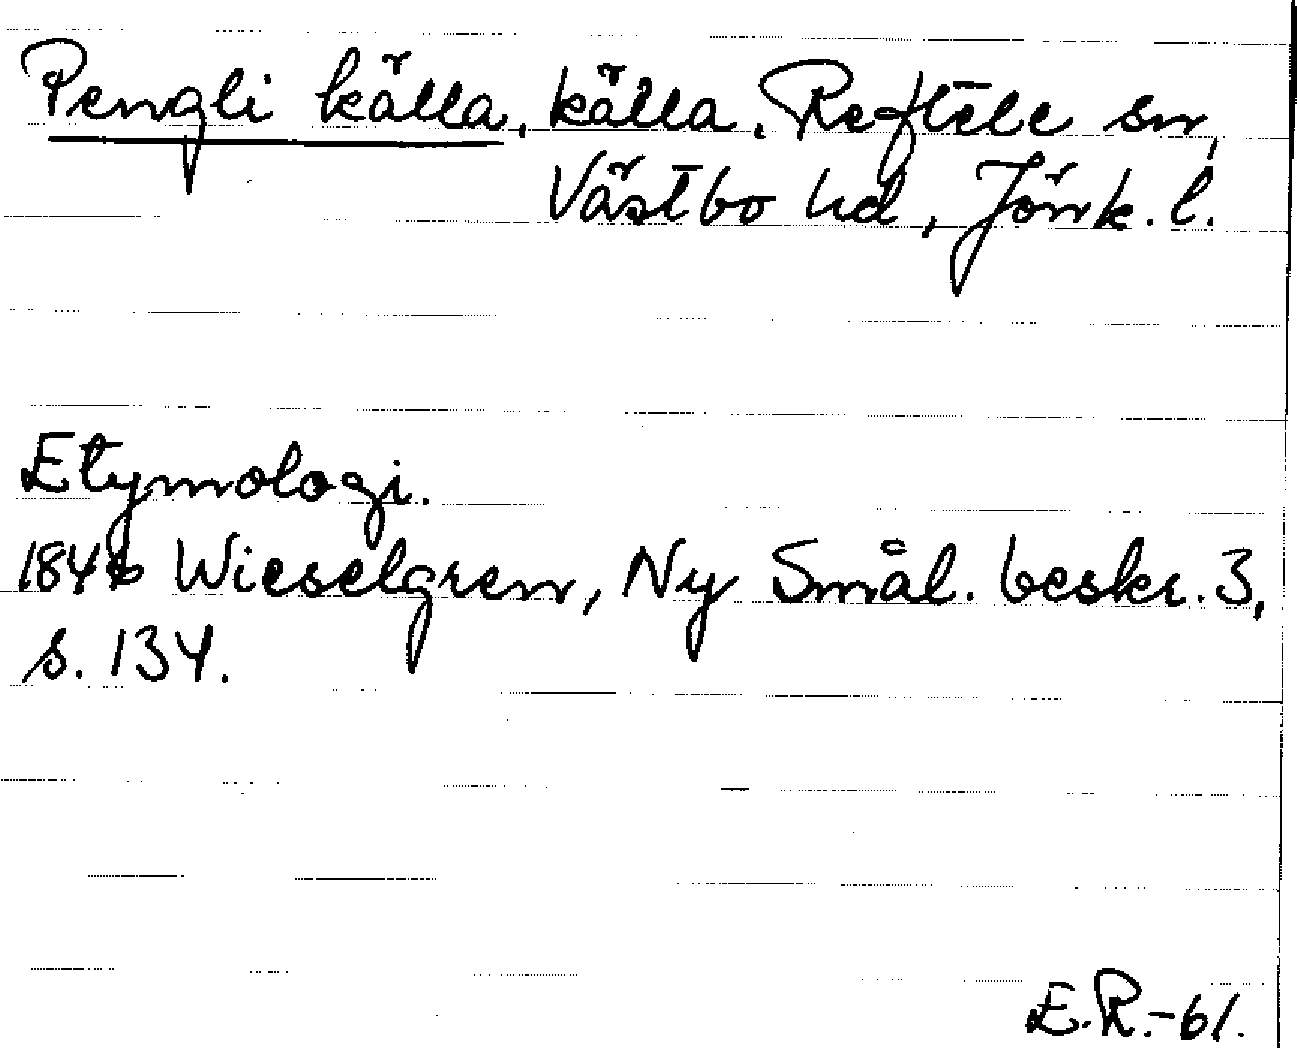 Pengli källa, källa, Reftele sn,
Västbo hd, Jönk. l.
Etymologi.
1846 Wieselgren, Ny Smål. beskr. 3,
s. 134.
E.R.-61.